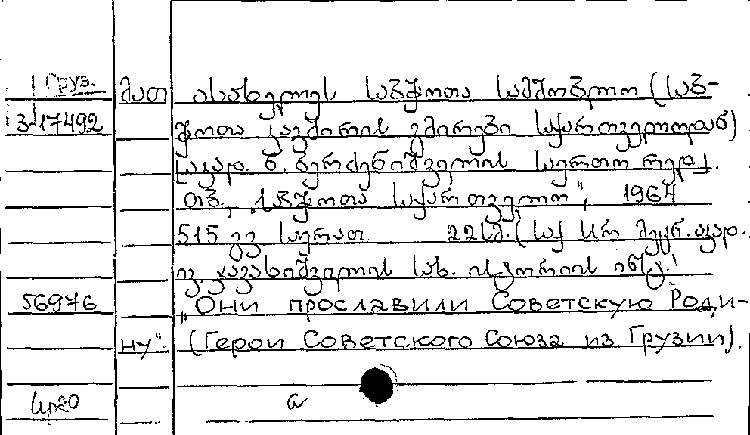 Груз. მათ ასახელეს საბჭოთა სამშობლო (საბ-
3-17492 ჭოთა კავშირის გმირები საქართველოდან)
აკად. ნ. ბერძენიშვილის საერთო რედ.
თბ., „საბჭოთა საქართველო", 1964
515 გვ სურათ. 22სმ. (საქ სსრ მეცნ. აკად.
ივ ჯავახიშვილის სახ. ისტორიის ინსტ.)
56976 „Они прославили Советскую Роди-
ну" (Герои Советского Союза из Грузии).
а